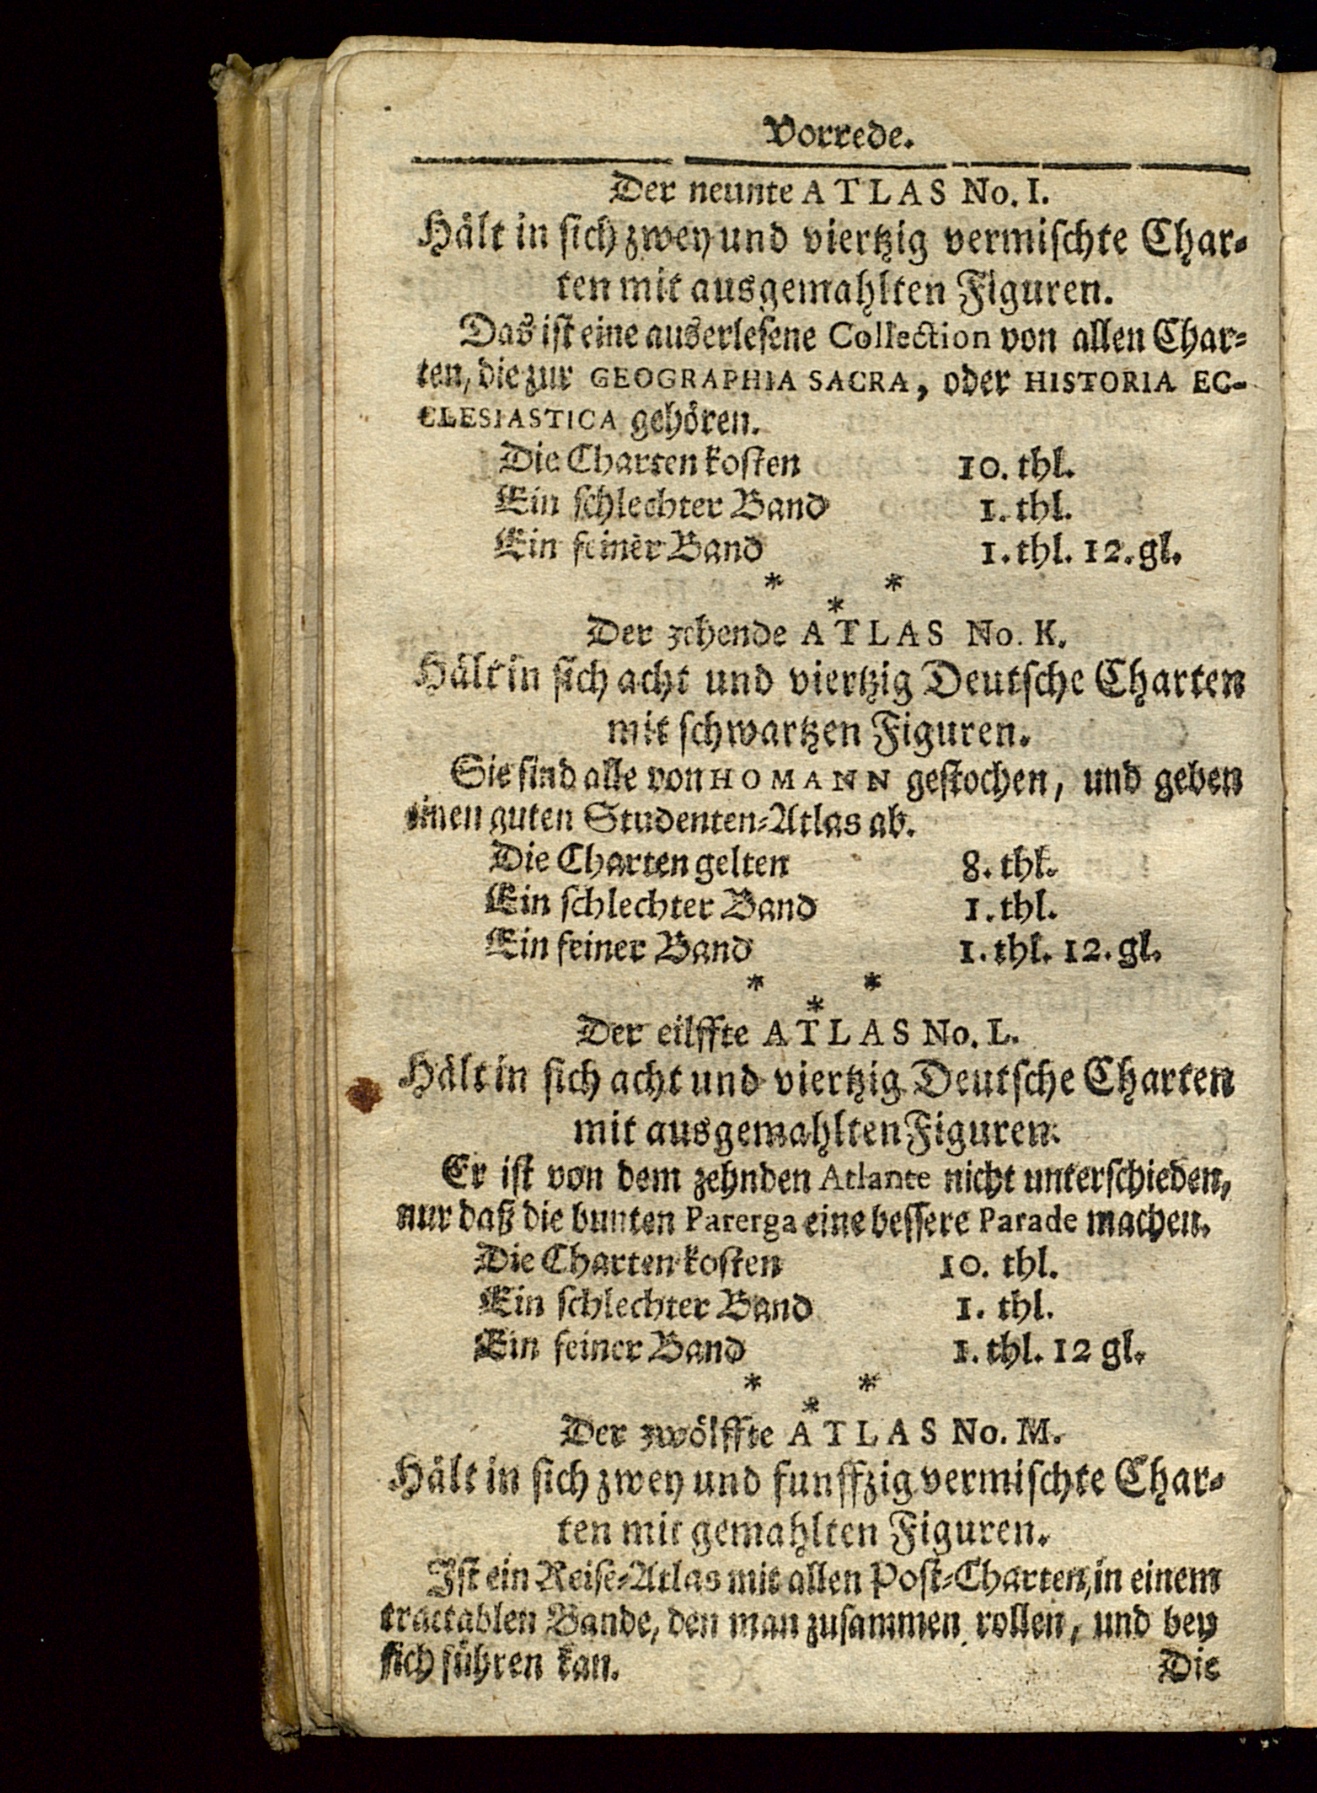 Vorrede.
Der neunte ATLAS No. I.
Hält in sich zwey und viertzig vermischte Char-
ten mit ausgemahlten Figuren.
Das ist eine auserlesene Collection von allen Char-
ten, die zur GEOGRAPHIA SACRA, oder HISTORIA EC-
CLESIASTICA gehören.
Die Charten kosten 10. thl.
Ein schlechter Band 1. thl.
Ein feiner Band 1. thl. 12. gl.
* * *
Der zehende ATLAS No. K.
Hält in sich acht und viertzig Deutsche Charten
mit schwartzen Figuren.
Sie sind alle von HOMANN gestochen, und geben
einen guten Studenten-Atlas ab.
Die Charten gelten 8. thl.
Ein schlechter Band 1. thl.
Ein feiner Band 1. thl. 12. gl.
* * *
Der eilffte ATLAS No. L.
Hält in sich acht und viertzig Deutsche Charten
mit ausgemahlten Figuren.
Er ist von dem zehnden Atlante nicht unterschieden,
nur daß die bunten Parerga eine bessere Parade machen.
Die Charten kosten 10. thl.
Ein schlechter Band 1. thl.
Ein feiner Band 1. thl. 12 gl.
* * *
Der zwölffte ATLAS No. M.
Hält in sich zwey und funffzig vermischte Char-
ten mit gemahlten Figuren.
Ist ein Reise-Atlas mit allen Post-Charten, in einem
tractablen Bande, den man zusammen rollen, und bey
sich führen kan.
Die